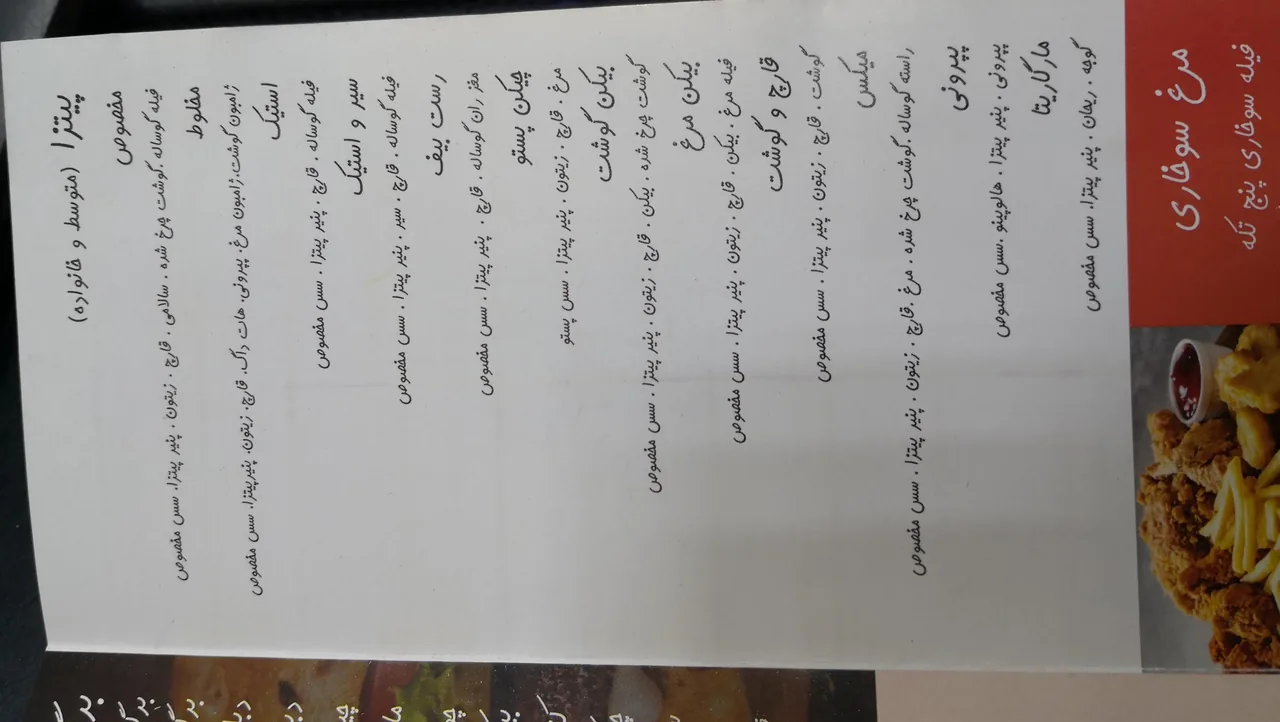 پیتزا (متوسط و خانواده)
مخصوص
فیله گوساله .گوشت چرخ شده . سالامی . قارچ . زیتون . پنیر پیتزا. سس مخصوص
مخلوط
ژامبون گوشت. ژامبون مرغ. پپرونی. هات داگ. قارچ. زیتون. پنیرپیتزا. سس مخصوص
استیک
فیله گوساله . قارچ . پنیر پیتزا . سس مخصوص
سیر و استیک
فیله گوساله . قارچ . سیر . پنیر پیتزا . سس مخصوص
رست بیف
مغز ران گوساله . قارچ . پنیر پیتزا . سس مخصوص
چیکن پستو
مرغ . قارچ . زیتون . پنیر پیتزا . سس پستو
بیکن گوشت
گوشت چرخ شده . بیکن . قارچ . زیتون . پنیر پیتزا . سس مخصوص
بیکن مرغ
فیله مرغ . بیکن . قارچ . زیتون . پنیر پیتزا . سس مخصوص
قارچ و گوشت
گوشت . قارچ . زیتون . پنیر پیتزا . سس مخصوص
میکس
راسته گوساله .گوشت چرخ شده . مرغ قارچ . زیتون . پنیر پیتزا . سس مخصوص
پپرونی
پپرونی . پنیر پیتزا . هالوپینو .سس مخصوص
مارگاریتا
گوجه . ریحان . پنیر پیتزا. سس مخصوص
مرغ سوخاری
فیله سوخاری پنج تکه